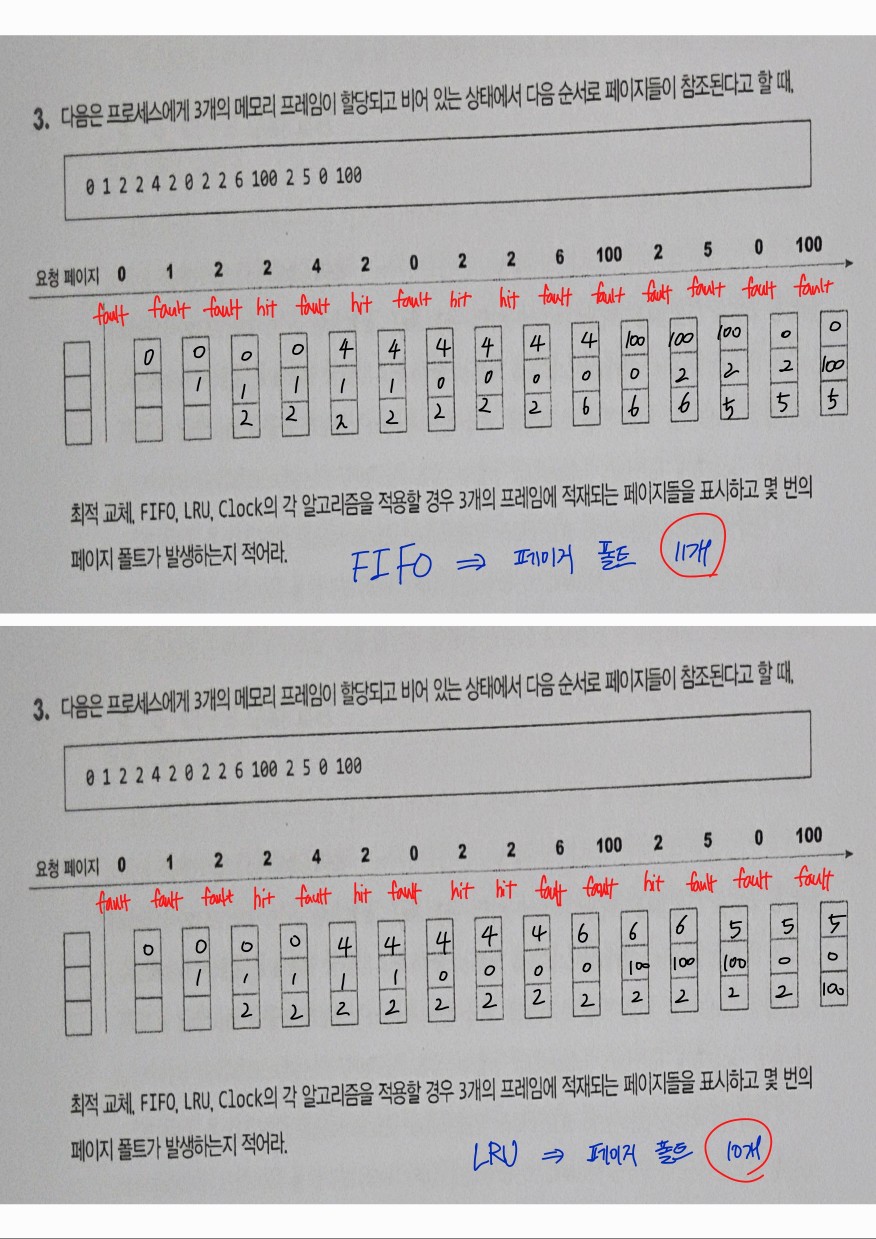 3. 다음은 프로세스에게 3개의 메모리 프레임이 할당되고 비어 있는 상태에서 다음 순서로 페이지들이 참조된다고 할 때,
0 1 2 2 4 2 0 2 2 6 100 2 5 0 100
요청 페이지 0 1 2 2 4 2 0 2 2 6 100 2 5 0 100
fault fault fault hit fault hit fault hit hit fault fault fault fault fault fault
0 0 0 0 4 4 4 4 4 4 100 100 100 0 0
1 1 1 1 1 0 0 0 0 0 2 2 2 100
2 2 2 2 2 2 2 6 6 6 5 5 5
최적 교체, FIFO, LRU, Clock의 각 알고리즘을 적용할 경우 3개의 프레임에 적재되는 페이지들을 표시하고 몇 번의
페이지 폴트가 발생하는지 적어라.
FIFO ⇒ 페이지 폴트 11개
3. 다음은 프로세스에게 3개의 메모리 프레임이 할당되고 비어 있는 상태에서 다음 순서로 페이지들이 참조된다고 할 때,
0 1 2 2 4 2 0 2 2 6 100 2 5 0 100
요청 페이지 0 1 2 2 4 2 0 2 2 6 100 2 5 0 100
fault fault fault hit fault hit fault hit hit fault fault hit fault fault fault
0 0 0 0 4 4 4 4 4 6 6 6 5 5 5
1 1 1 1 1 0 0 0 0 100 100 100 0 0
2 2 2 2 2 2 2 2 2 2 2 2 100
최적 교체, FIFO, LRU, Clock의 각 알고리즘을 적용할 경우 3개의 프레임에 적재되는 페이지들을 표시하고 몇 번의
페이지 폴트가 발생하는지 적어라.
LRU ⇒ 페이지 폴트 10개